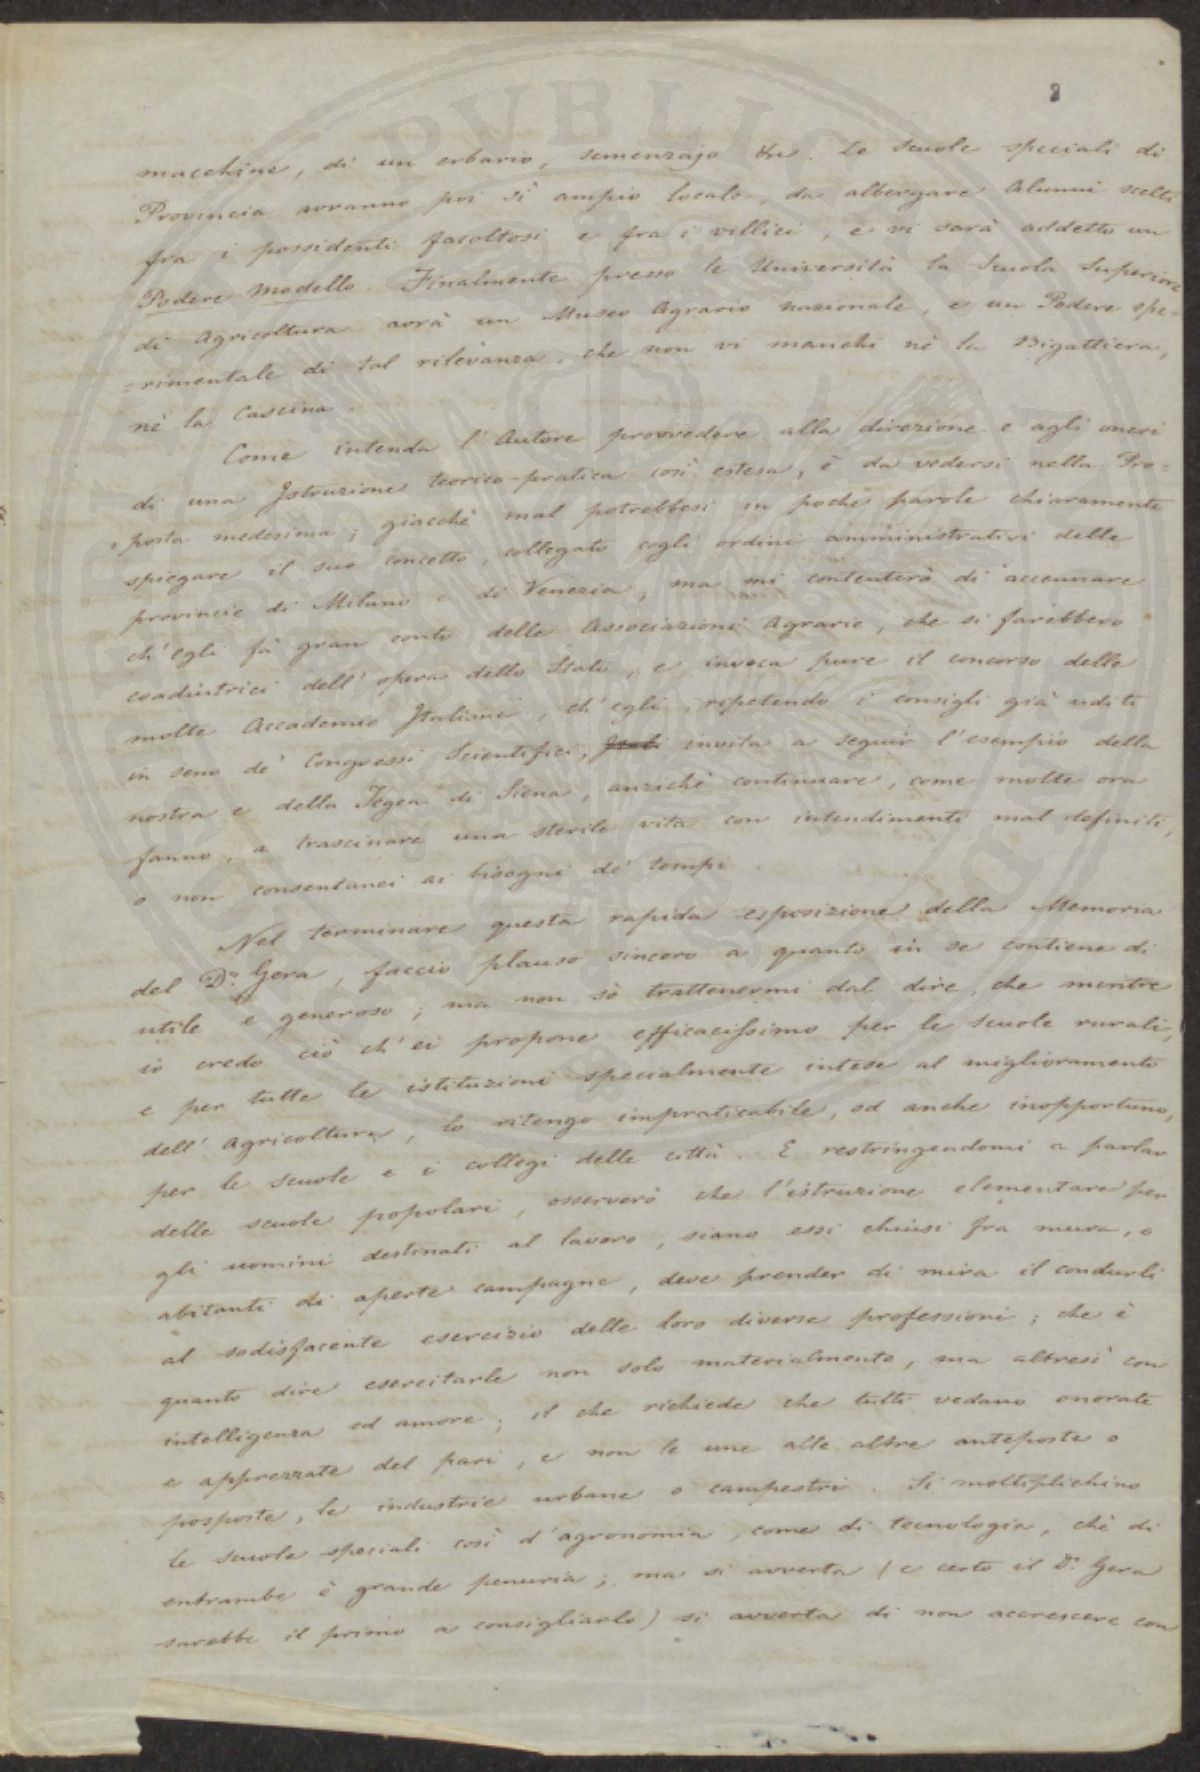 2
macchine, di un erbario, semenzajo &c. Le Scuole speciali di
Provincia avranno poi sì ampio locale, da albergare Alunni scelti
fra i possidenti facoltosi e fra i villici, e vi sarà addetto un
Podere modello. Finalmente presso le Università la Scuola Superiore
di Agricoltura avrà un Museo Agrario nazionale, e un Podere spe=
=rimentale di tal rilevanza, che non vi manchi nè la Bigattiera,
nè la Cascina.
Come intenda l'Autore provvedere alla direzione e agli oneri
di una Istruzione teorico-pratica così estesa, è da vedersi nella Pro=
=posta medesima; giacchè mal potrebbesi in poche parole chiaramente
spiegare il suo concetto, collegato cogli ordini amministrativi delle
provincie di Milano e di Venezia, ma mi contenterò di accennare
ch'egli fà gran conto delle Associazioni Agrarie, che si farebbero
coadiutrici dell'opera dello Stato, e invoca pure il concorso delle
molte Accademie Italiane, ch'egli, repetendo i consigli già uditi
in seno de' Congressi Scientifici, invita a seguir l'esempio della
nostra e della Tegea di Siena, anzichè continuare, come molte ora
fanno, a trascinare una sterile vita con intendimenti mal definiti,
o non consentanei ai bisogni de' tempi.
Nel terminare questa rapida esposizione della Memoria
del Dr. Gera, faccio plauso sincero a quanto in se contiene di
utile e generoso; ma non sò trattenermi dal dire, che mentre
io credo ciò ch'ei propone efficacissimo per le scuole rurali,
e per tutte le istituzioni specialmente intese al miglioramento
dell'Agricoltura, lo ritengo impraticabile, ed anche inopportuno,
per le scuole e i collegi delle città. E restringendomi a parlar
delle scuole popolari, osserverò che l'istruzione elementare per
gli uomini destinati al lavoro, siano essi chiusi fra mura, o
abitanti di aperte campagne, deve prender di mira il condurli
al sodisfacente esercizio delle loro diverse professioni; che è
quanto dire esercitarle non solo materialmente, ma altresì con
intelligenza ed amore; il che richiede che tutti vedano onorate
e apprezzate del pari, e non le une alle altre anteposte o
posposte, le industrie urbane o campestri. Si moltiplichino
le scuole speciali così d'agronomia, come di tecnologia, chè di
entrambe è grande penuria; ma si avverta (e certo il Dr. Gera
sarebbe il primo a consigliarlo) si avverta di non accrescere con